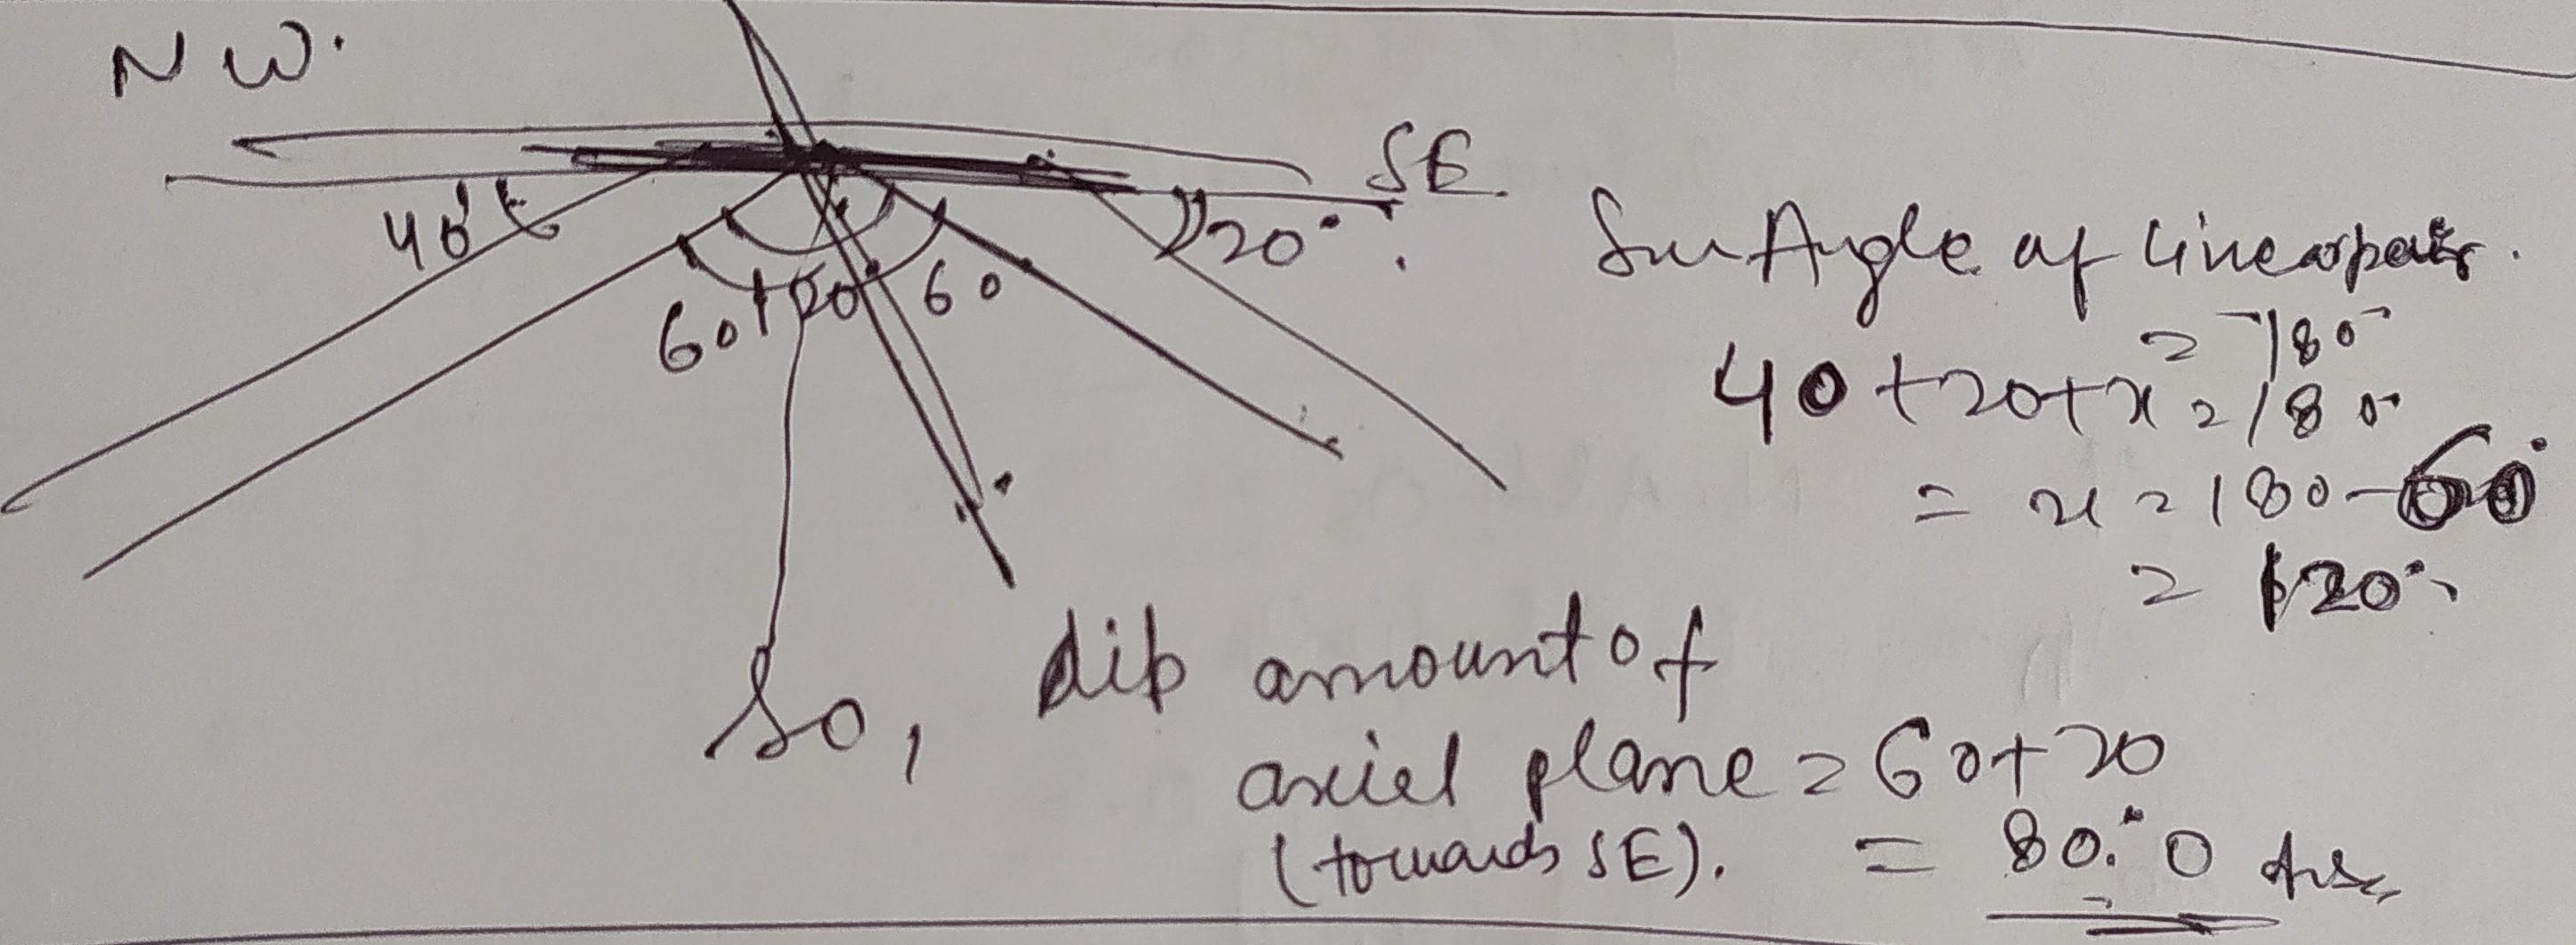 NW.
SE.
40°
20°
60 120 60
Sum Angle of linear pair.
= 180°
40+20+x = 180°
= x = 180-60°
= 120°
So, dip amount of
axiel plane = 60+20
(towards SE). = 80.°0 Ans